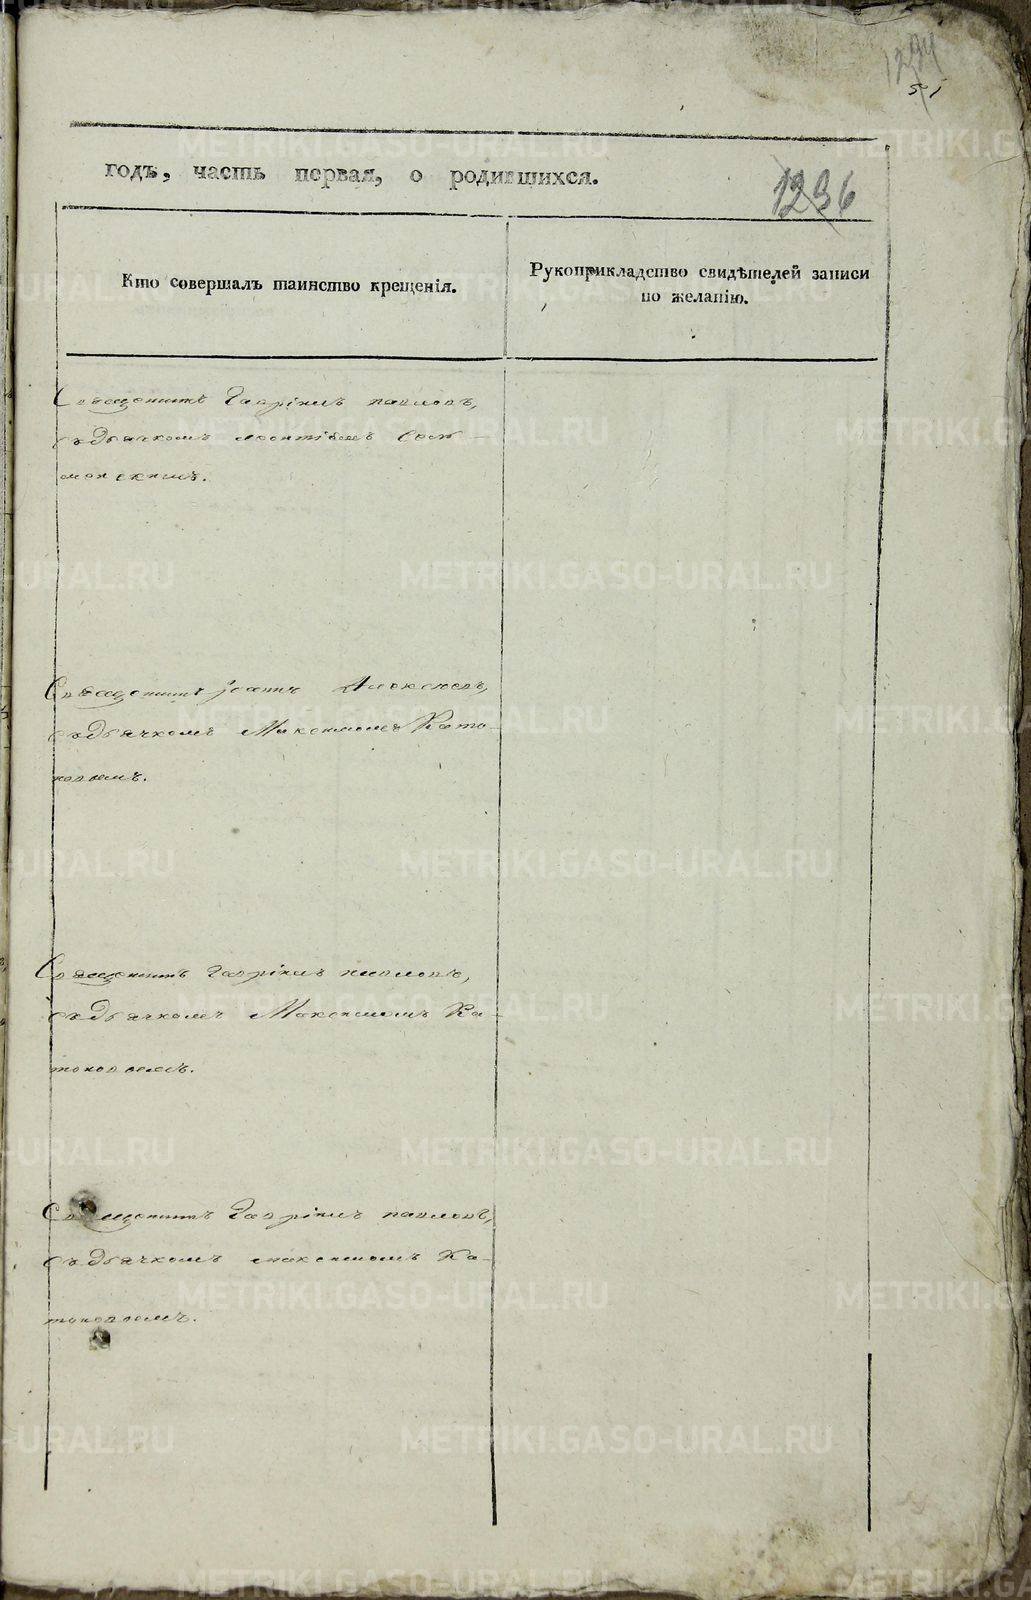 51
годъ, часть первая, о родившихся.
1236
Кто совершалъ таинство крещенія.
Рукоприкладство свидѣтелей записи
по желанію.
Священникъ Гавріилъ павловъ,
съ дьячкомъ
Священникъ Іоаннъ Алексеевъ,
съ дьячкомъ Максимомъ Кото-
ковымъ.
Священникъ Гавріилъ павловъ,
съ дьячкомъ Максимомъ Ка-
токовымъ.
Священникъ Гавріилъ павловъ,
съ дьячкомъ максимомъ Ка-
токовымъ.
METRIKI.GASO-URAL.RU